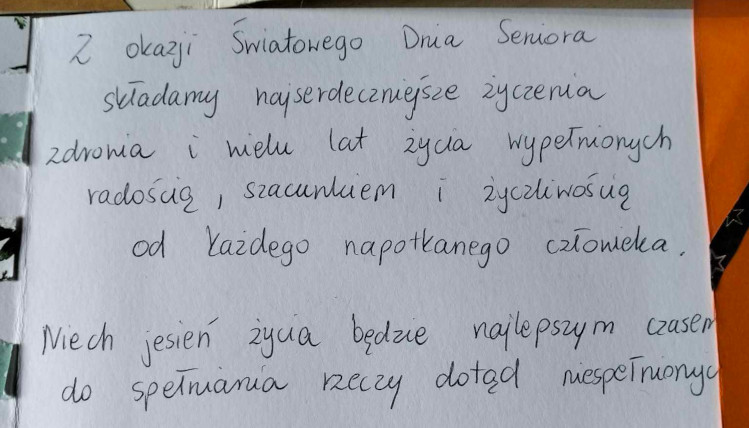 Z okazji Światowego Dnia Seniora
składamy najserdeczniejsze życzenia
zdrowia i wielu lat życia wypełnionych
radością, szacunkiem i życzliwością
od każdego napotkanego człowieka.
Niech jesień życia będzie najlepszym czasem
do spełniania rzeczy dotąd niespełnionyc